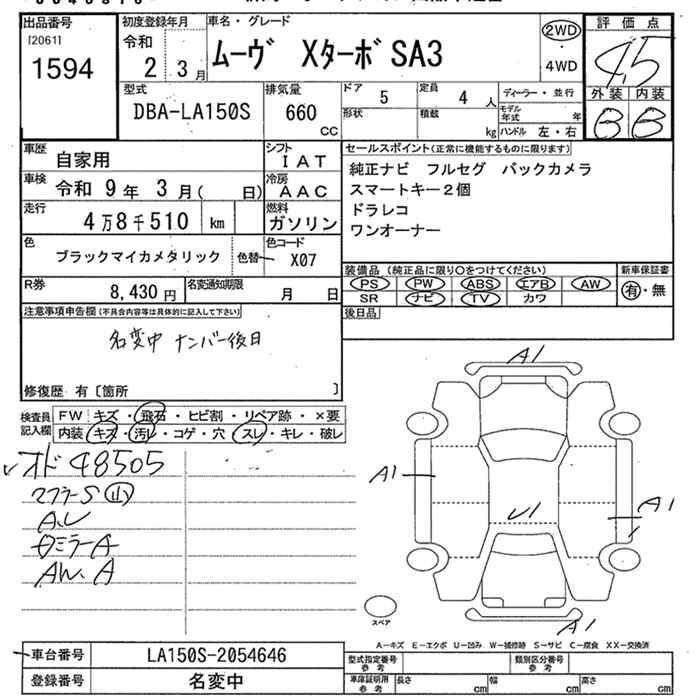 出品番号 [2061] 1594
初度登録年月 令和 2年 3月
車名・グレード ムーヴ Xターボ SA3
2WD・4WD
評価点 4.5
外装 内装
B B
型式 DBA-LA150S
排気量 660 CC
ドア 5 定員 4 人
形状 積載 kg
ディーラー・並行
モデル年式 年
ハンドル 左・右
車歴 自家用
シフト IAT
車検 令和 9年 3月( 日)
冷房 AAC
走行 4万8千510 km
燃料 ガソリン
色 ブラックマイカメタリック 色替
色コード X07
R券 8,430 円
名変通知期限 月 日
セールスポイント(正常に機能するものに限ります)
純正ナビ フルセグ バックカメラ
スマートキー2個
ドラレコ
ワンオーナー
装備品(純正品に限り○をつけてください)
新車保証書
PS PW ABS エアB AW
SR ナビ TV カワ
有・無
後日品
注意事項申告欄(不具合内容等は具体的に記入して下さい)
名変中 ナンバー後日
修復歴 有〔箇所 〕
検査員記入欄
FW キズ・飛石・ヒビ割・リペア跡・×要
内装 キズ・汚レ・コゲ・穴 スレ・キレ・破レ
オド 48505
マフラーS 小
ミラーA
AW.A
A1
A1
U1
A1
A1
スペア
A-キズ E-エクボ U-凹み W-補修跡 S-サビ C-腐食 XX-交換済
車台番号 LA150S-2054646
登録番号 名変中
型式指定番号 参考
類別区分番号 参考
車庫証明用 参考
長さ cm 幅 cm 高さ cm